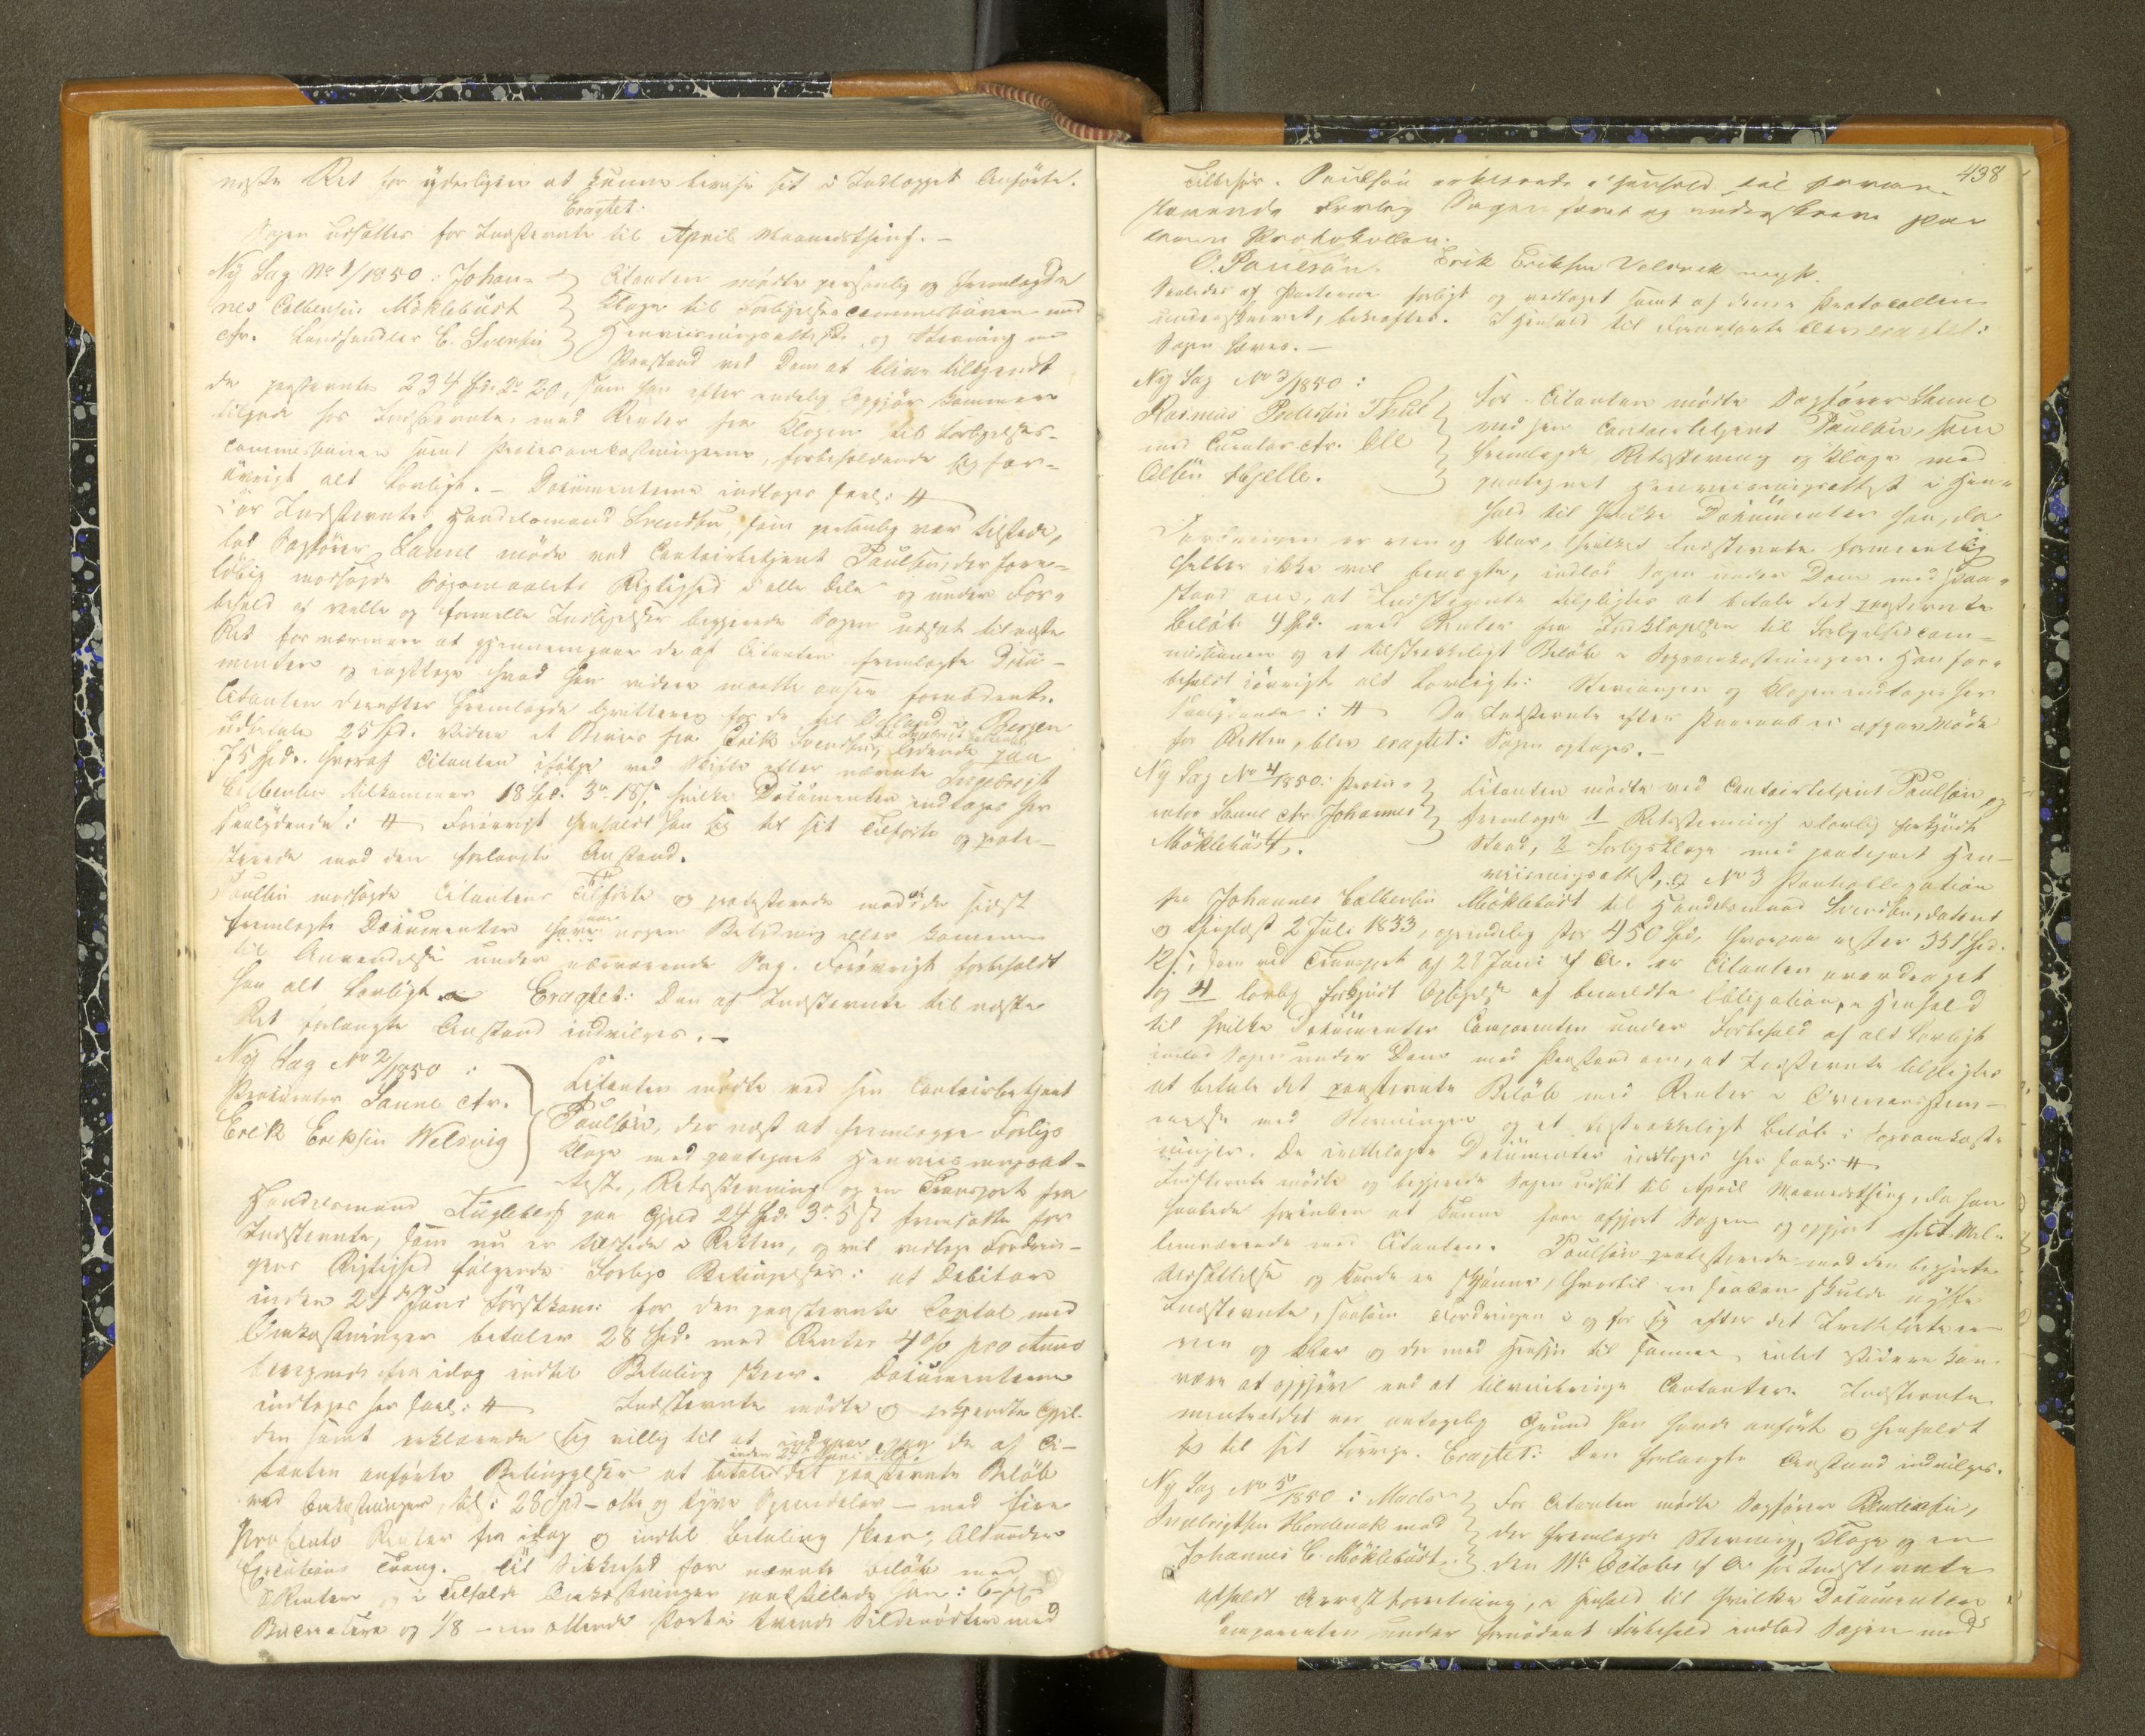 næste Ret for yderligere at kunne bevise sit i Indlægget Anførte.
Eragtet.
Sagen udsættes for Indstevnte til April Maanedsthing. –
Ny Sag No 1/1850: Johan-
nes Colbensen Möklebüst
ctr. Landhandler C. Svensen
Citanten mødte personlig og fremlagde
Klage til Forligelsescommissionen med
Henviisningsattest, og Stevning med
Paastand ved Dom at blive tilkjendt
de paastevnte 234 Spd. 2 20, som han efter endelig Opgjør kommer
tilgode hos Indstevnte, med Renter fra Klagen til Forligelses-
commissionen samt Procesomkostningerne, forbeholdende sig for-
øvrigt alt lovligt. – Documenterne indtages saal: #
For Indstevnte Handelsmand Svendsen, som personlig var tilstede,
lod Sagfører Sanne møde ved Contoirbetjent Paulsen, der fore-
løbig modsagde Søgemaalets Rigtighed i alle Dele og under For-
behold af reelle og formelle Indsigelser begjerede Sagen udsat til næste
Ret for nærmere at gjennemgaae de af Citanten fremlagte Docu-
menter og iagttage hvad han videre maatte ansee fornødent.
Citanten derefter fremlagde Qvittering for de til i Bergen
udbetalte 25 Spd. videre et Beviis fra Erik Svendsen, lydende paa
75 Spd. hvoraf Citanten ifølge ved Skifte efter nævnte Ingebrigt
Colbensen tilkommer 18 Spd. 3 18 s, hvilke Documenter indtages her
saalydende: # Forøvrigt henholdt han sig til sit Tilførte og prote-
sterede mod den forlangte Anstand.
Paulsen modsagde Citantens Tilførte og protesterede mod at de sidst
fremlagte Documenter have nogen Betydning eller komme
til Anvendelse under nærværende Sag. Forøvrigt forbeholdt
han alt lovligt. Eragtet: Den af Indstevnte til næste
Ret forlangte Anstand indvilges. –
Ny Sag No 2/1850:
Procurator Sanne ctr.
Erik Eriksen Welsvig
Citanten mødte ved sin Contoirbetjent
Paulsen, der næst at fremlægge Forligs
Klage med paategnet Henviisningsat-
test, Retsstevning og en Transport fra
Handelsmand Fuglebey paa Gjeld 24 Spd. 3 5 s fremsatte for
Indstevnte, som nu er tilstede i Retten, og vil vedtage Fordrin-
gens Rigtighed følgende Forligs Betingelser: at Debitor
inden 24de Juni førstkom: for den paastevnte Capital med
Omkostninger betaler 28 Spd. med Renter 4 o/o pro Anno
beregnede fra idag indtil Betaling skeer. Documenterne
indtages her saal: # Indstevnte mødte og erkjendte Gjel-
den samt erklærede sig villig til at indgaae paa de af Ci-
tanten anførte Betingelser at betale det paastevnte Beløb
inden 24de Juni d. A.
med Omkostninger, til: 28 Spd – otte og tyve Speciedaler – med fire
Procento Renter fra idag og indtil Betaling skeer, alt under
Executions Tvang. Til Sikkerhed for nævnte Beløb med
Renter og i Tilfælde Omkostninger pantstillede han:
og 1/8 – en ottende Part i med
438
Tilbehør. Paulsen erklærede i Henhold til foran-
staaende Forlig Sagen hævet og underskreve paa
denne Protokollen.
O. Paulsön. Erik Eriksen Velsvik
Saaledes af Parterne forligt og vedtaget samt af denne Protocollen
underskrevet, bekræftes. I Henhold til Foranførte blev eragtet:
Sagen hæves. –
Ny Sag No 3/1850:
Rasmus Pedersen Thue
med Curator ctr. Ole
Olsen Hjelle.
For Citanten mødte Sagfører Sanne
ved sin Contoirbetjent Paulsen, som
fremlagde Retsstevning og Klage med
paategnet Henviisningsattest i Hen-
hold til hvilke Documenter han, da
Fordringen er reen og klar, hvilket Indstevnte formeentlig
heller ikke vil benægte, indlod Sagen under Dom med Paa-
stand om, at Indstevnte tilpligtes at betale det paastevnte
Beløb 4 Spd. med Renter fra Indklagelsen til Forligelsescom-
missionen og et tilstrækkeligt Beløb i Sagsomkostninger. Han for-
beholdt iøvrigt alt lovligt: Stevningen og Klagen indtages her
saalydende: # Da Indstevnte efter Paaraab ei afgav Møde
for Retten, blev eragtet: Sagen optages. –
Ny Sag No 4/1850: Procu-
rator Sanne ctr. Johannes
Möklebüst.
Citanten mødte ved Contoirbetjent Paulsen og
fremlagde 1 Retsstevning i lovlig forkyndt
Stand, 2 Forligsklage med paategnet Hen-
viisningsattest, og No 3 Pantobligation
fra Johannes Colbensen Möklebüst til Handelsmand Svendsen, dateret
og thinglæst 2 Juli 1833, oprindelig stor 450 Spd, hvorpaa rester 351 Spd.
12 s, som ved Transport af 28 Juni f. A. er Citanten overdraget
og 4 lovlig forkyndt Opsigelse af bemeldte Obligation, i Henhold
til hvilke Documenter Comparenten under Forbehold af alt lovligt
indlod Sagen under Dom med Paastand om, at Indstevnte tilpligtes
at betale det paastevnte Beløb med Renter i Overeensstem-
melse med Stevningen og et tilstrækkeligt Beløb i Sagsomkost-
ninger. De irettelagte Documenter indtages her saal: #
Indstevnte mødte og begjerede Sagen udsat til April Maanedsthing, da han
haabede forinden at kunne faae afgjort Sagen og opgjort sit Mel-
lemværende med Citanten. Paulsen protesterede mod den begjerte
Udsættelse og kunde ei skjønne, hvortil en saadan skulde nytte
Indstevnte, saasom Fordringen i og for sig efter det Irettelagte er
reen og klar og der med Hensyn til samme intet videre kan
være at opgjøre end at tilveiebringe Contanter. Indstevnte
meente det var antagelig Grund han havde anført og henholdt
sig til sit Forrige. Eragtet: Den forlangte Anstand indvilges.
Ny Sag No 5/1850: Mads
Ingebrigtsen Hordenak mod
Johannes C. Möklebüst.
For Citanten mødte Sagfører Bendixsen,
der fremlagde Stevning, Klage og en
den 11te October f. A. hos Indstevnte
afholdt Arrestforretning, i Henhold til hvilke Documenter
Comparenten under fornødent Forbehold indlod Sagen med